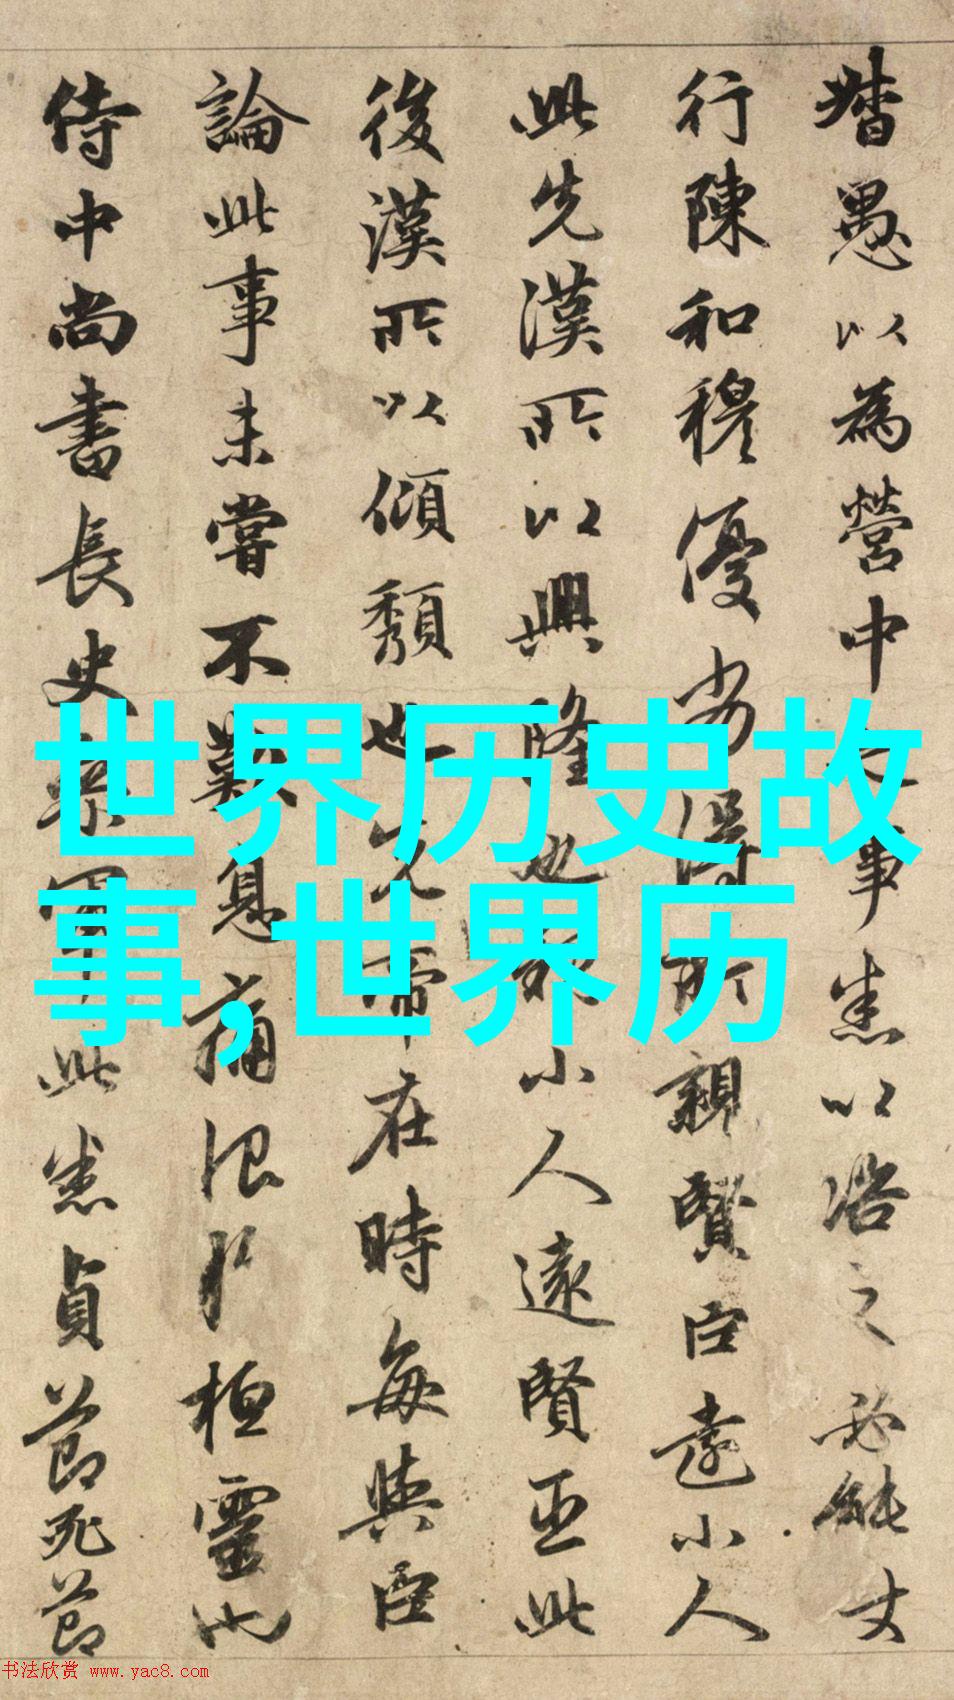 督愚以為營中之事悉以咨之必能使
行陳和穆優劣得所親賢臣遠小人
此先漢所以興隆也親小人遠賢臣此
後漢所以傾頹也先帝在時每與臣
論此事未嘗不歎息痛恨於桓靈也
侍中尚書長史參軍此悉貞節死節
世界历史故
事,世界历
书法欣赏 www.yac8.com